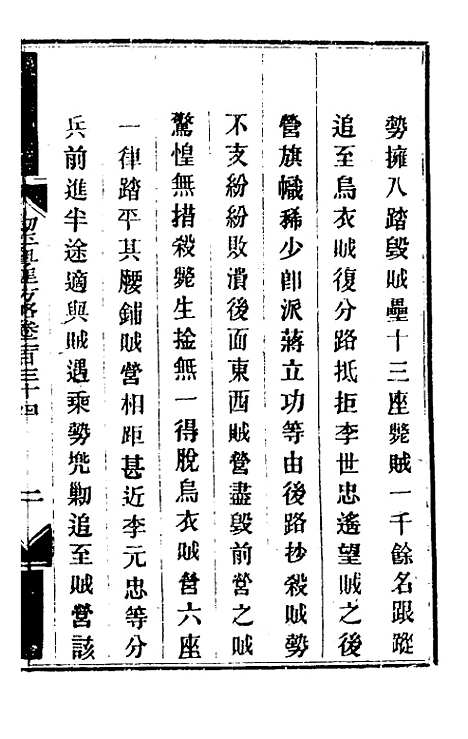 勢擁入踏毀賊壘十三座斃賊一千餘名跟蹤
追至烏衣賊復分路抵拒李世忠遙望賊之後
營旗幟稀少卽派蔣立功等由後路抄殺賊勢
不支紛紛敗潰後面東西賊營盡毀前營之賊
驚惶無措殺斃生捦無一得脫烏衣賊營六座
一律踏平其腰鋪賊營相距甚近李元忠等分
兵前進半途適與賊遇乘勢兜勦追至賊營該
方略卷二百三十四
二